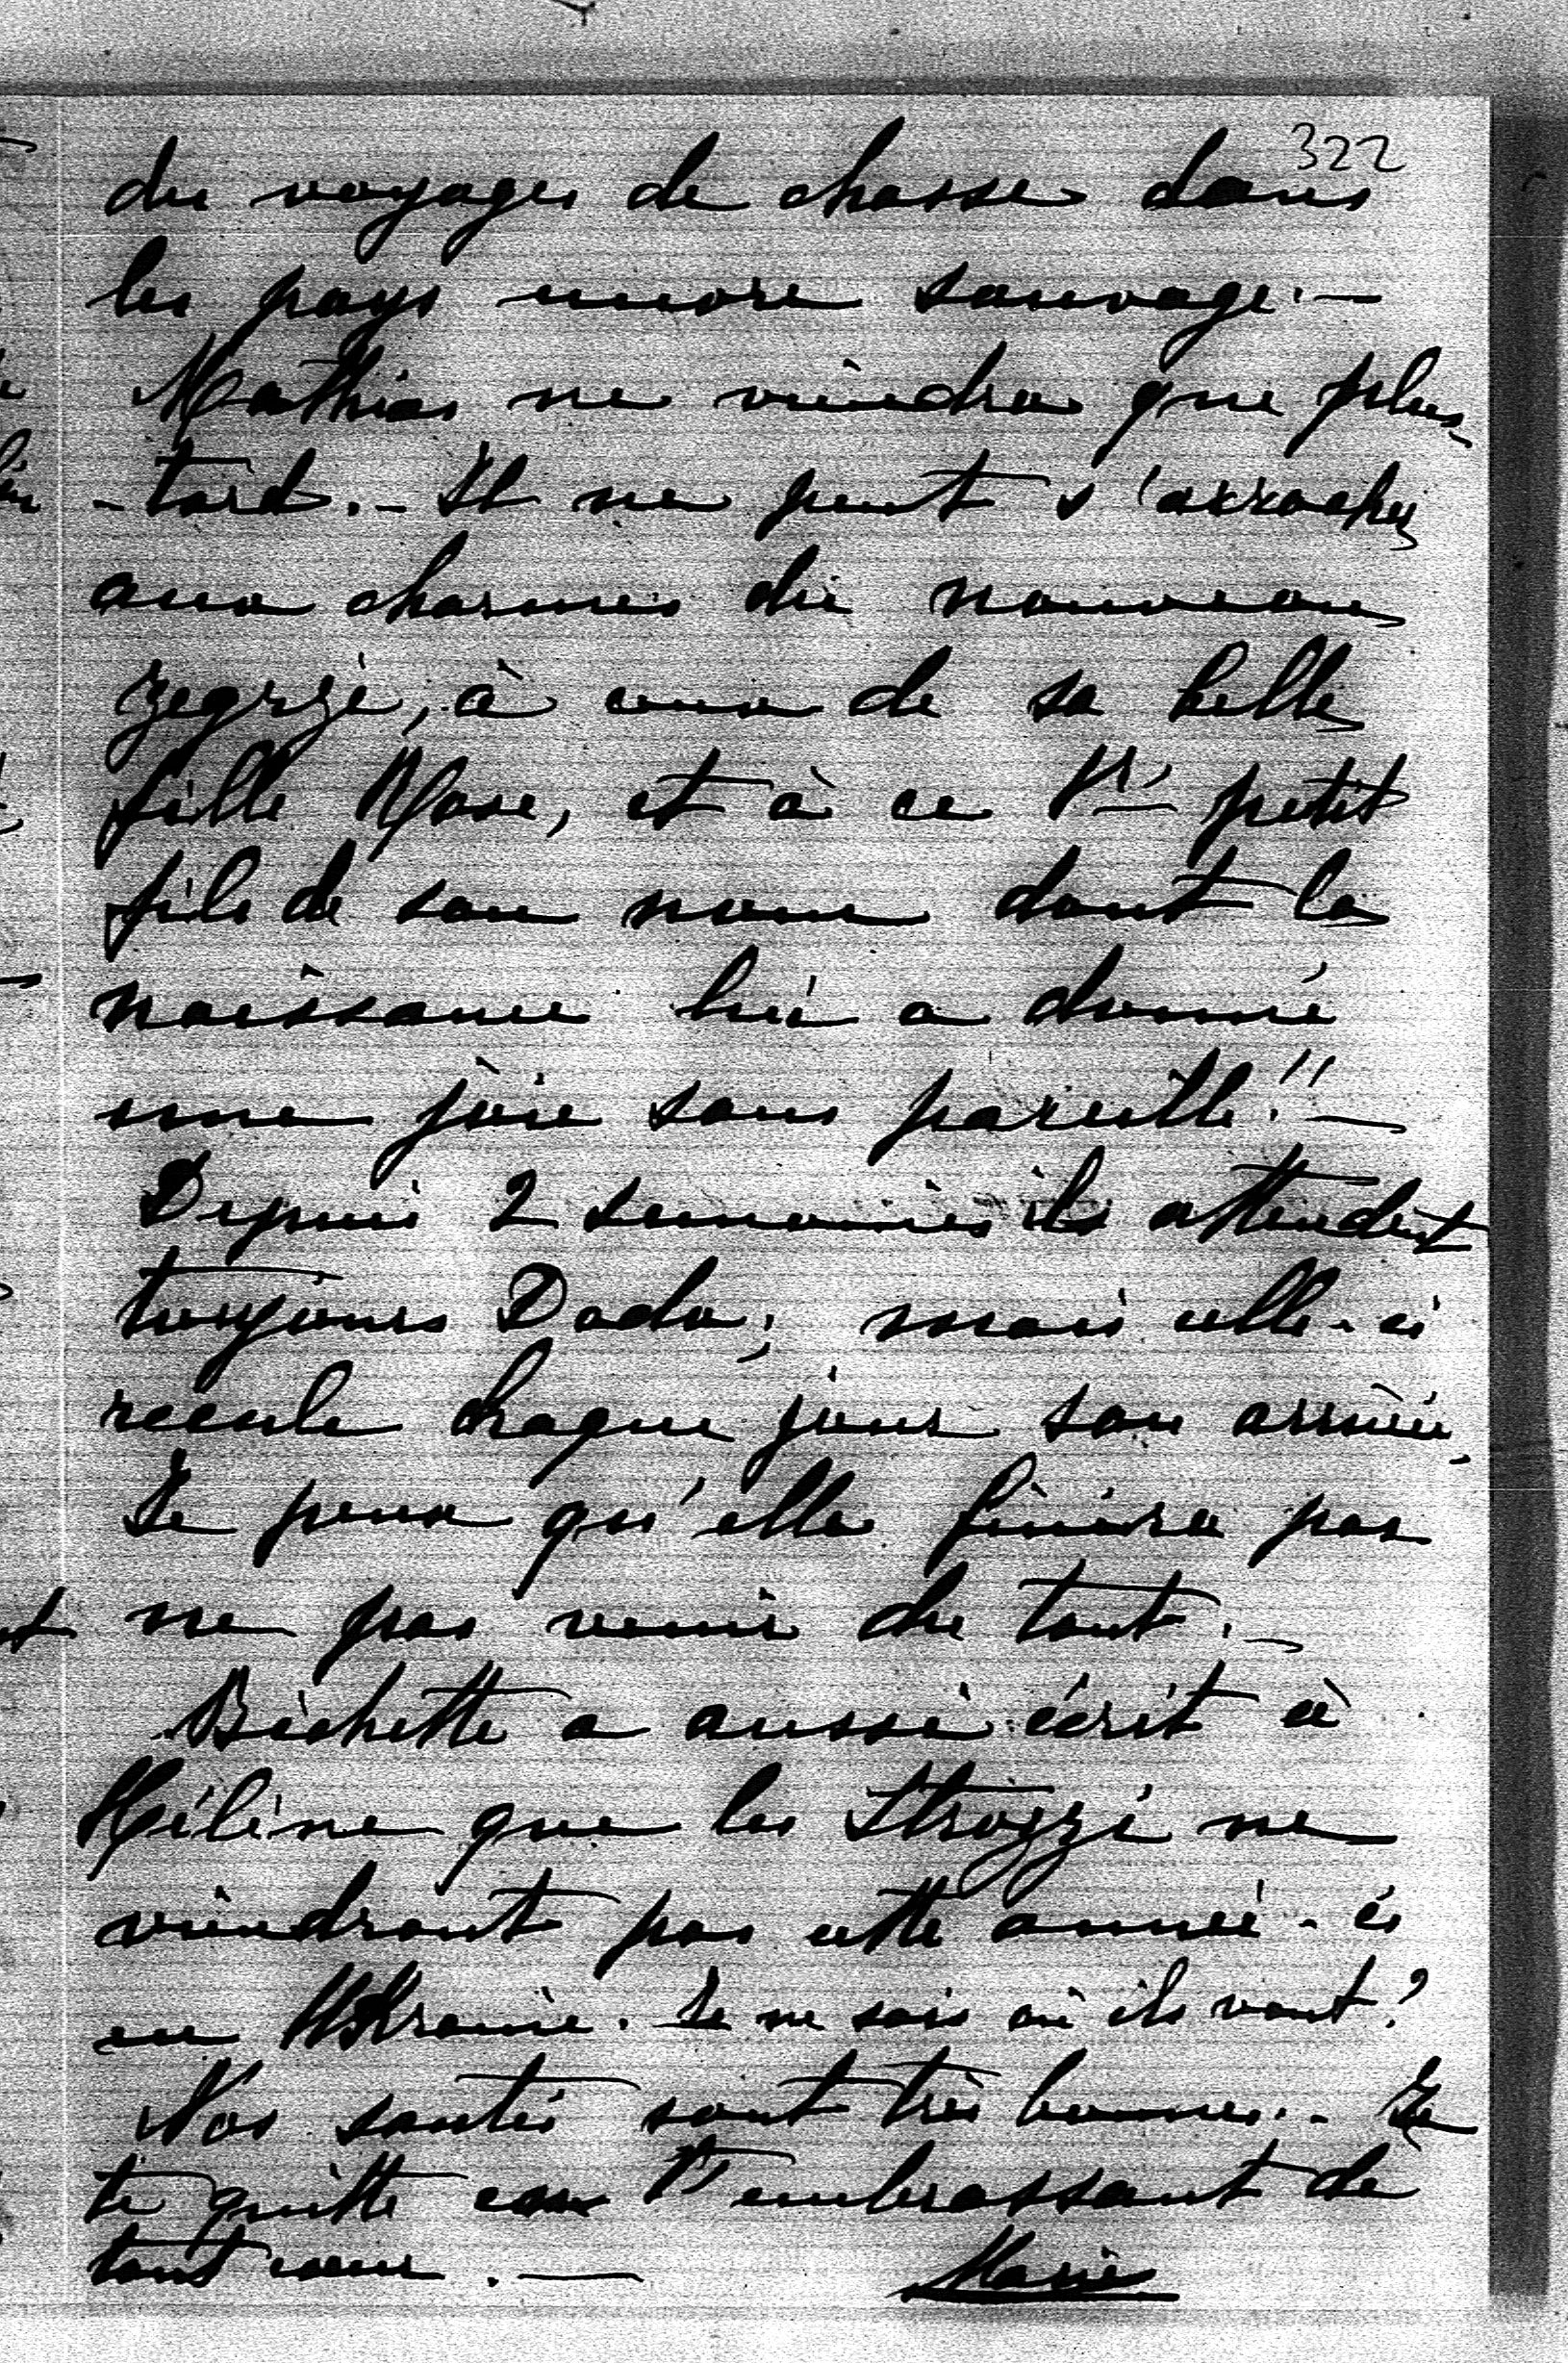 322
des voyages de chasse dans
les pays encore sauvage. —
Mathias ne viendra que plus
-tard. - Il ne peut s'arracher
aux charmes du nouveau
Zegrze, à ceux de sa belle
fille Rose, et à ce 1er petit
fils de son nom dont la
naissance lui a donné
une joie sans pareille!! —
Depuis 2 semaines ils attendent
toujours Dada; mais celle-ci
recule chaque jour son arrivée.
Je pense qu'elle finira par
ne pas venir du tout. —
Bichette a aussi écrit à
Hélène que les Strozzi ne
viendront pas cette année-ci
en Ukraine. Je ne sais où ils vont?
Nos santés sont très bonnes. - Je
te quitte en t'embrassant de
tout cœur. — Marie